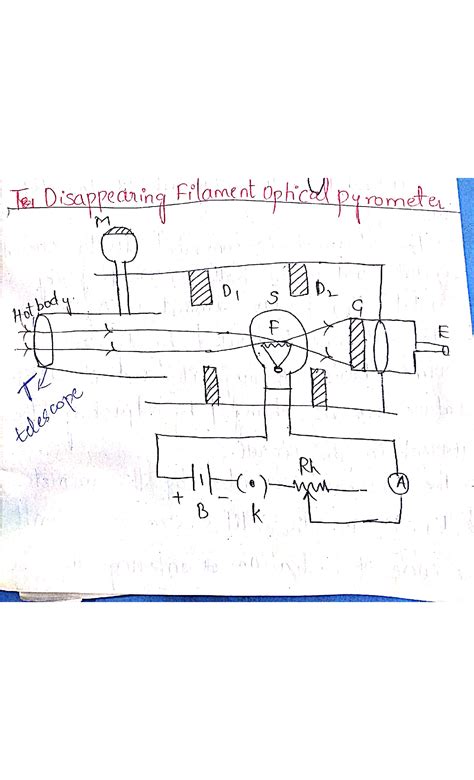 Disappearing Filament Optical pyrometer.
M
Hot body
D1
S
D2
F
G
E
T
telescope
+ B - K
Rh
A